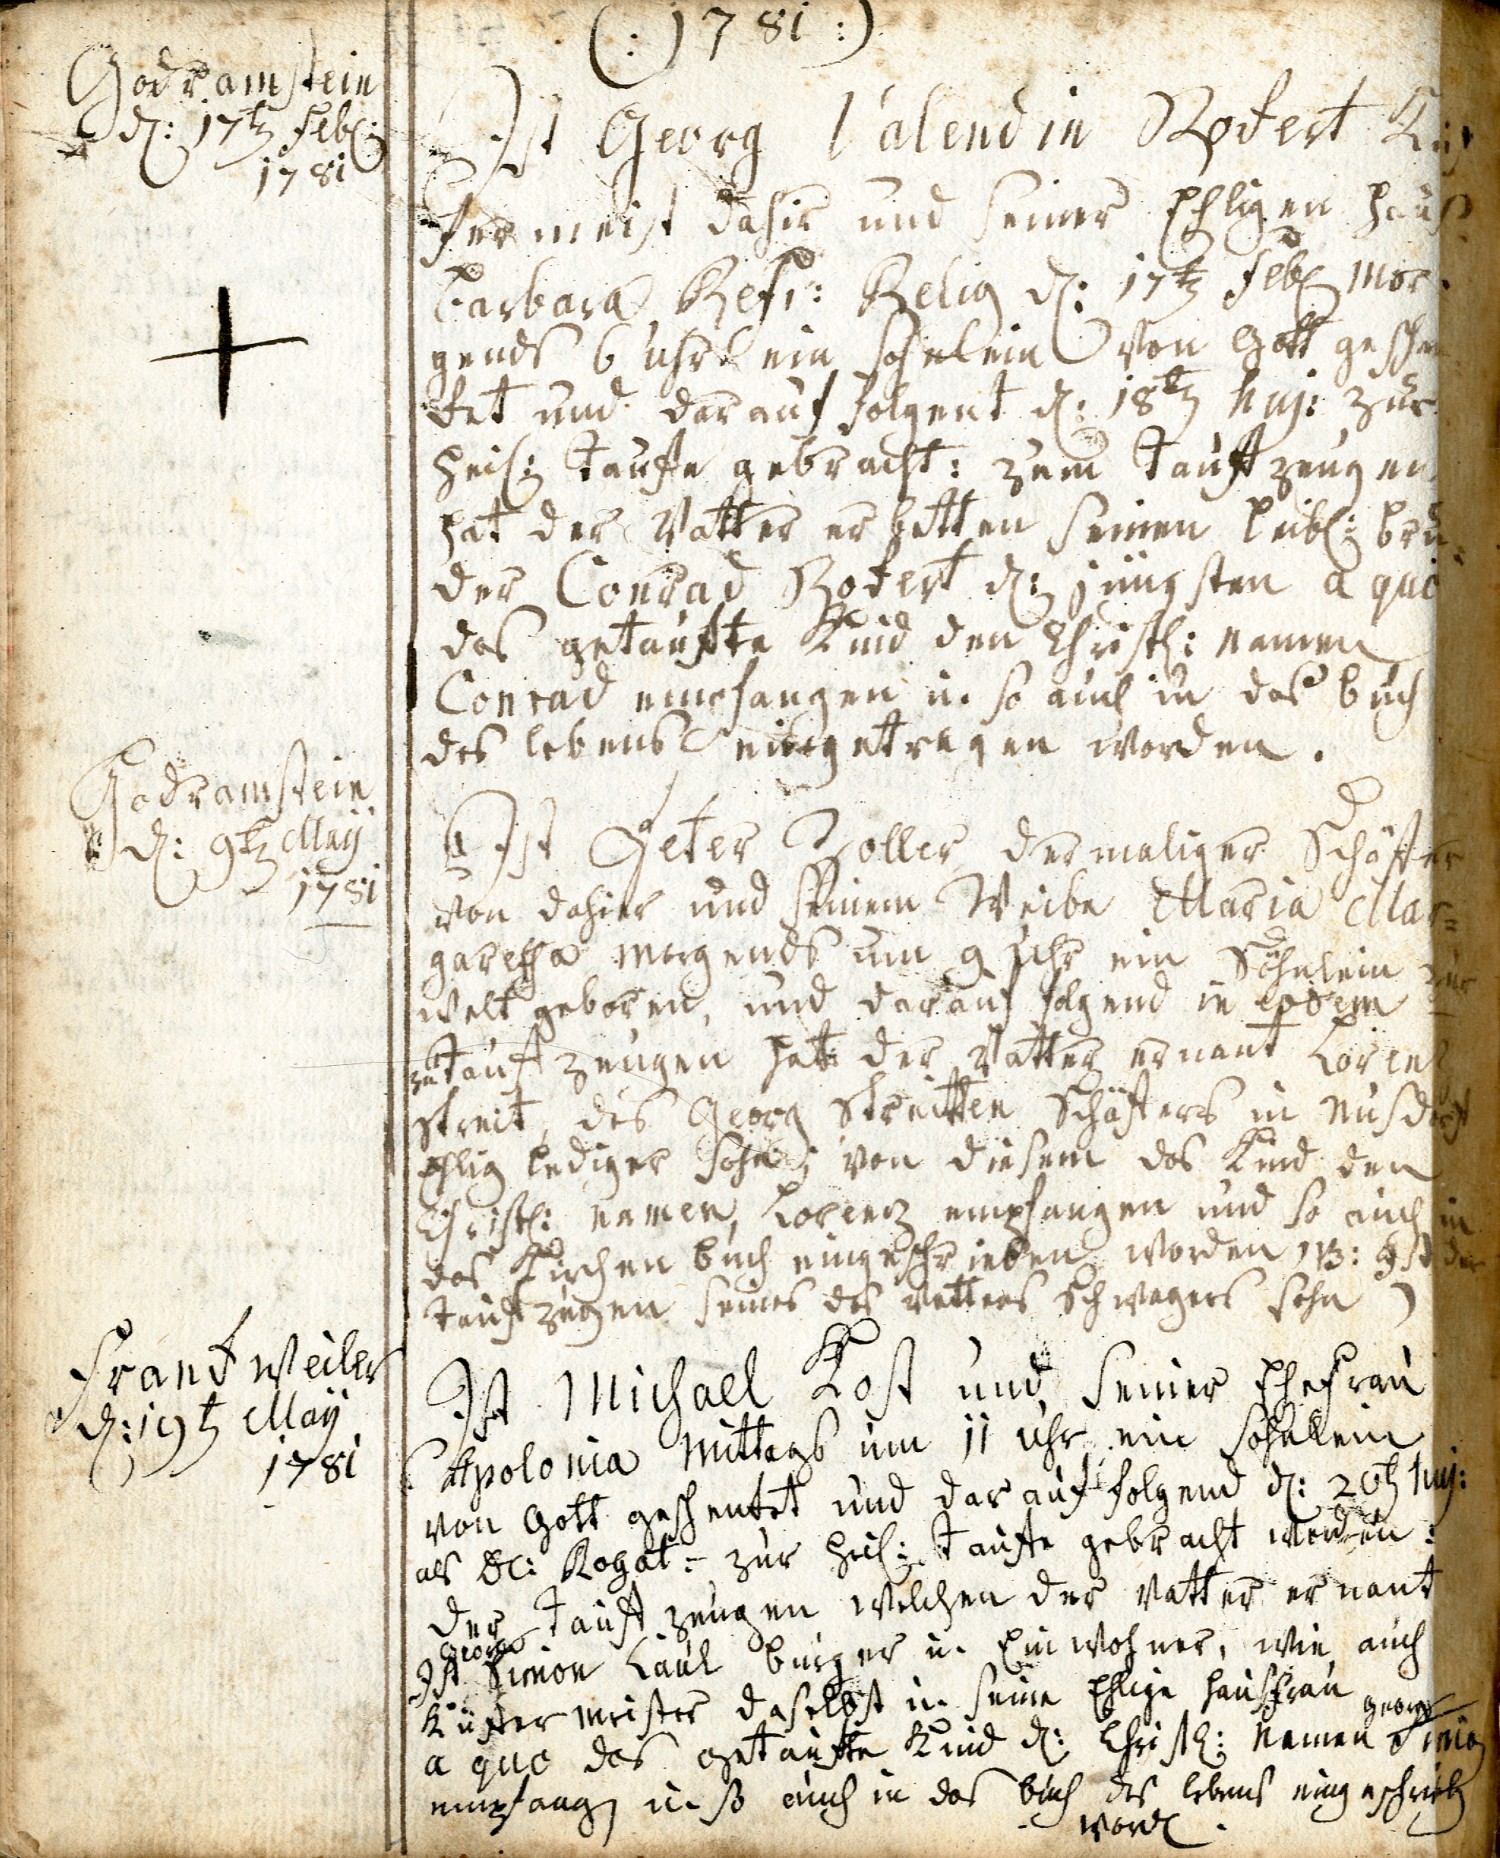 (: 1781 :)
Godramstein
d: 17t Feb:
1781
Ist Georg Valendin Rodert Küf
fermeist dahir und seiner Ehligen Hauß
Barbara Ref: Relig d: 17t Feb Mor
gends 6 uhr ein sohnlein von Gott geschen
cket und darauf folgent d: 18t huj: zur
Heil: Tauffe gebracht: zum Tauffzeugen
hat der Vatter erbetten seinen leibl: bru
der Conrad Rodert d: jüngsten a quo
das getauffte Kind den Christl: namen
Conrad empfangen u. so auch in das buch
des lebens eingetragen worden.
Godramstein
d: 9t Maÿ
1781
Ist Peter Zoller dermaliger Schäffer
von dahier und seinem Weibe Maria Mar=
garetha morgends um 9 Uhr ein Söhnlein zur
welt geboren, und darauf folgend in eodem
zu Tauffzeugen hat der Vatter ernant Lorenz
Streit, des Georg Streitten Schäffers in Nusdorff
Ehlig lediger Sohn; von diesem das Kind den
Christl: namen, Lorenz empfangen und so auch in
das Kirchenbuch eingeschrieben worden NB: Ist der
Tauffzeugen seines des vatters Schwagers sohn)
Franckweiler
d: 19t Maÿ
1781
Ist Michael Kost und seiner Ehefrau
Apolonia Mittags um 11 uhr ein sohnlein
von Gott geschencket und darauf folgend d: 20t huj:
als Dc: Rogat= zur Heil: Tauffe gebracht worden:
Der Tauffzeugen welchen der Vatter ernant
Ist Georg Simon Laul burger u. Einwohner, wie auch
Küffermeister daselbst u. seine Ehlige Hausfrau
a quo das getauffte Kind d: Christl: Namen Georg Simon
empfang u. so auch in das buch des lebens eingeschrieb
word.